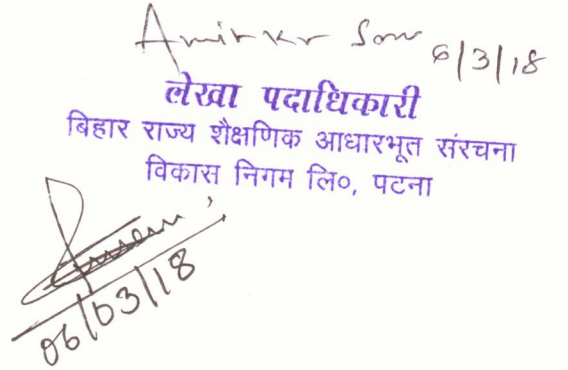 Amir Kr 6/3/18
लेखा पदाधिकारी
बिहार राज्य शैक्षणिक आधारभूत संरचना
विकास निगम लि०, पटना
06/03/18